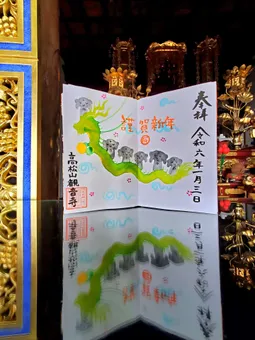 奉拝
令和六年一月三日
謹賀新年
高松山観音寺